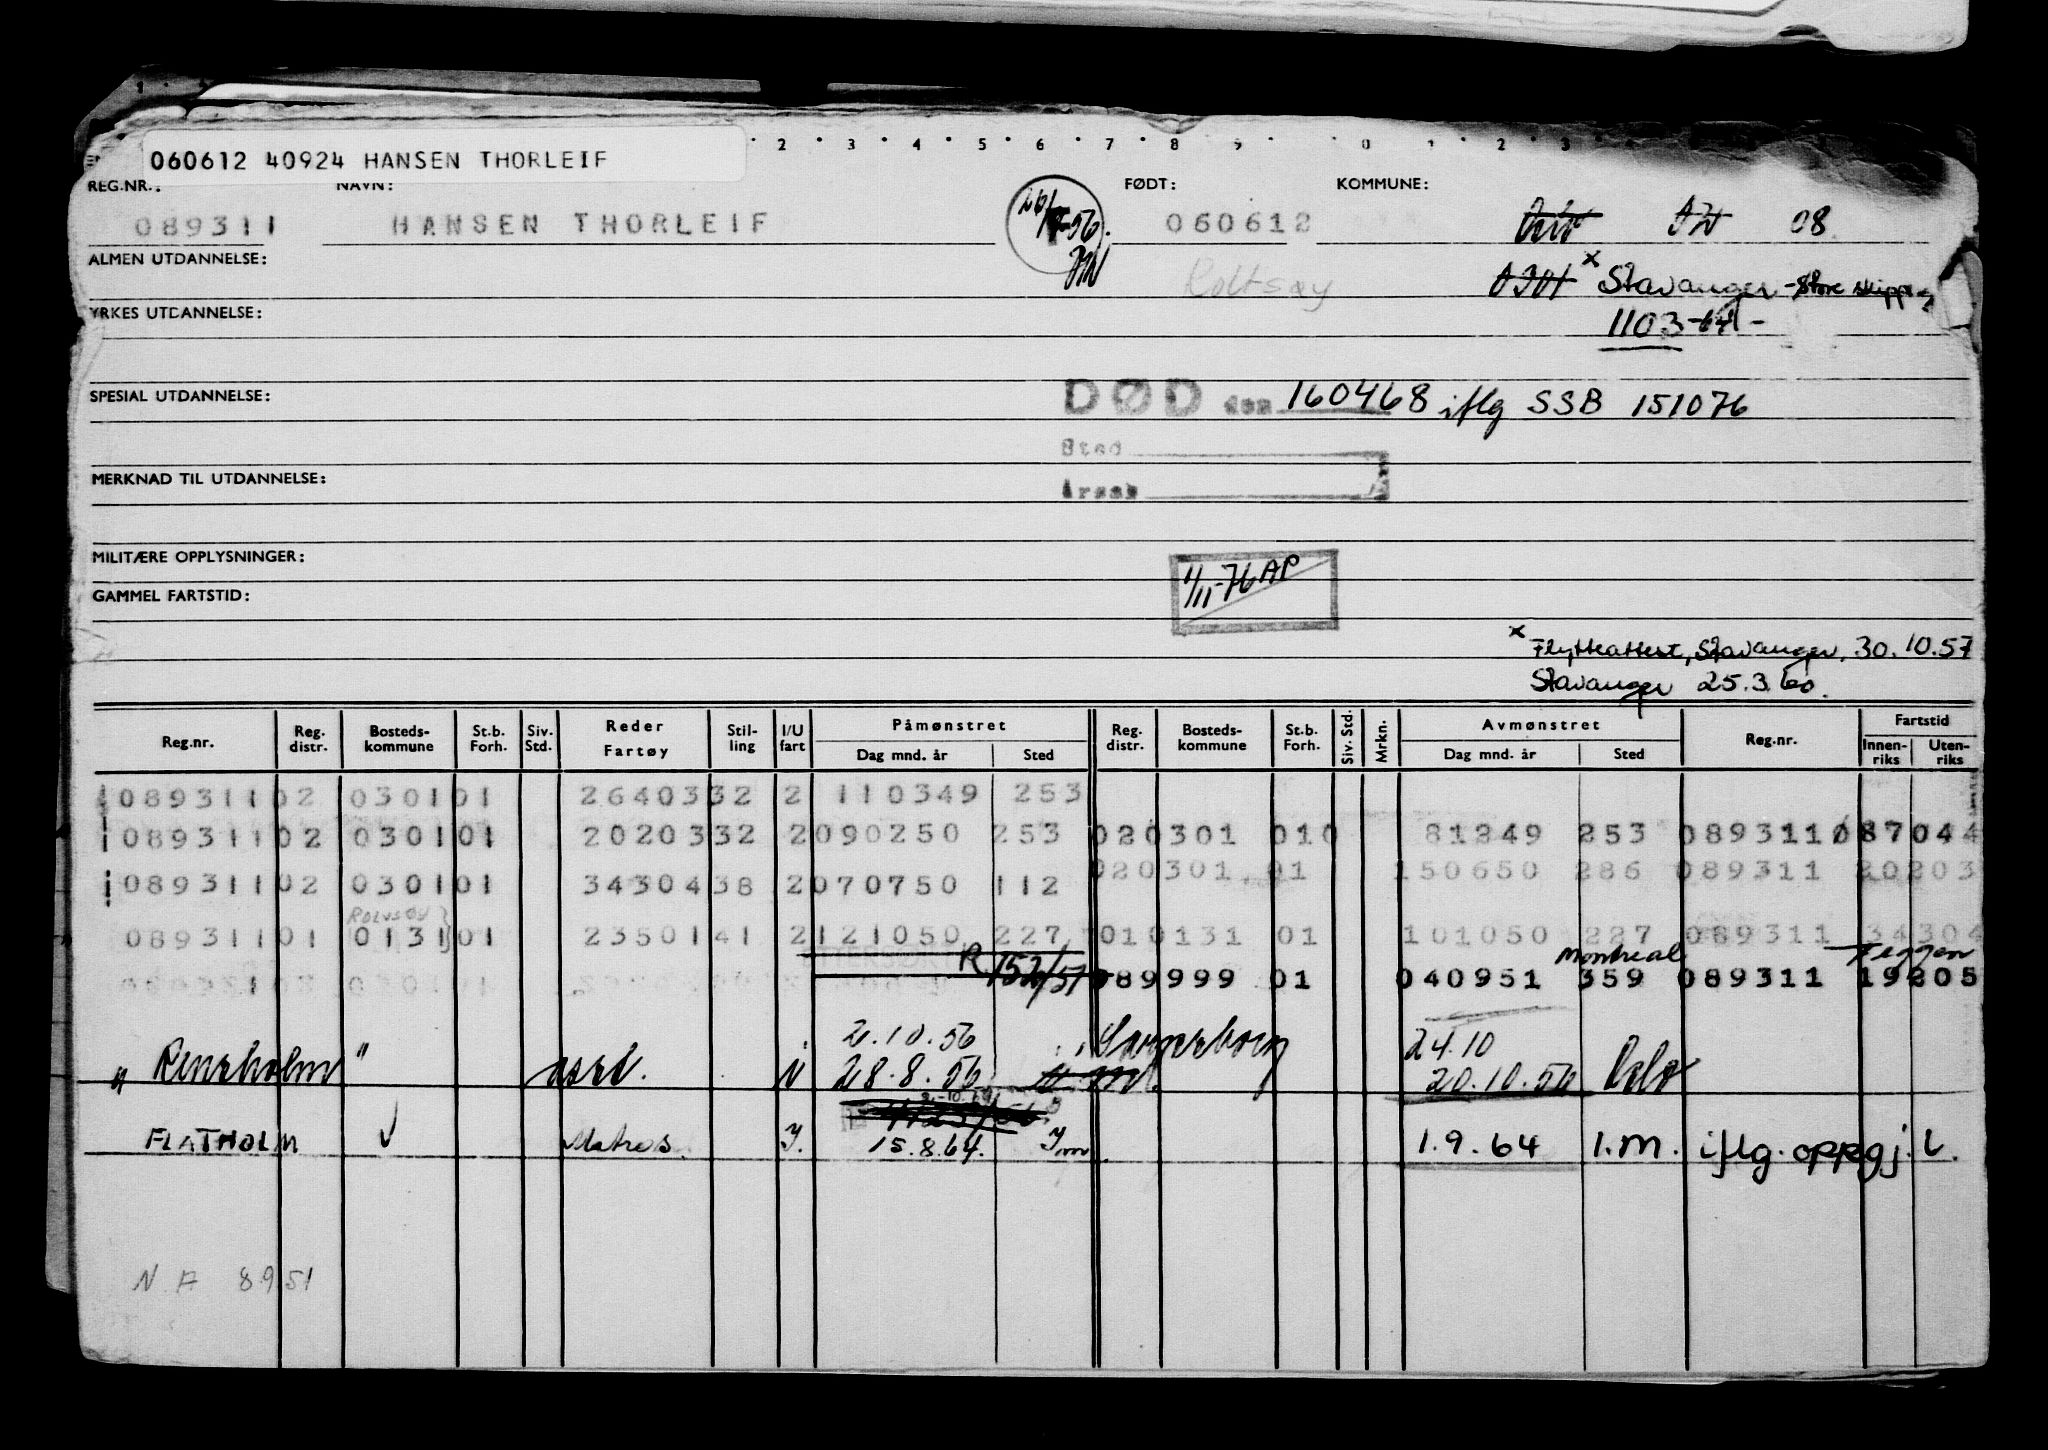 060612 40924 HANSEN THORLEIF
2 3 4 5 6 7 8 9 0 1 2 3
REG.NR.: NAVN: FØDT: KOMMUNE:
089311 HANSEN THORLEIF 060612 08
ALMEN UTDANNELSE: Stavanger - Store
YRKES UTDANNELSE: 1103-64-
SPESIAL UTDANNELSE: DØD den 160468 iflg SSB 151076
Sted
MERKNAD TIL UTDANNELSE: Årsak
MILITÆRE OPPLYSNINGER: 1/11-76 AP
GAMMEL FARTSTID:
x Flytteattest, Stavanger, 30.10.57
Stavanger 25.3.60.
Reg.nr. Reg. distr. Bosteds- kommune St.b. Forh. Siv. Std. Reder Fartøy Stil- ling I/U fart Påmønstret Dag mnd. år Sted Reg. distr. Bosteds- kommune St.b. Forh. Siv. Std. Mrkn. Avmønstret Dag mnd. år Sted Reg.nr. Fartstid Innen- riks Uten- riks
089311 02 0301 01 264033 32 2 110349 253
089311 02 0301 01 202033 32 2 090250 253 020301 010 81249 253 089311 087044
020301 01 150650 286 089311 20203
089311 02 0301 01 343043 38 2 070750 112
089311 01 0131 01 235014 41 2 121050 227 010131 01 101050 227 089311 34304
R 152/51 Montreal Feggen
089999 01 040951 359 089311 19205
2.10.56 24.10
" 28.8.56 20.10.56 Oslo
FLATHOLM Matros. I. 15.8.64. Im. 1.9.64 I.M. iflg. oppgj. L.
N.A 8951